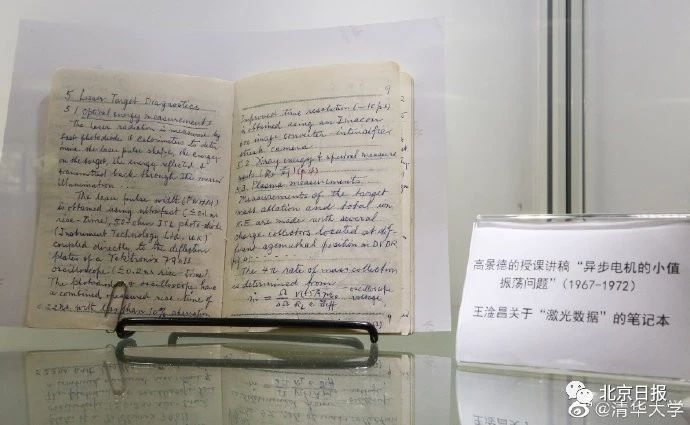 5 Laser Target Diagnostics
5.1 Optical energy measurements
The laser radiation is measured by
fast photodiode & calorimeters to deter
mine the laser pulse shape, the energy
on the target, the energy reflected &
transmitted back through the
illumination
The laser pulse width (FWHM)
is obtained using
rise-time), photo-diode
(Instrument Technology Ltd. U.K.)
coupled directly to the deflection
plates of a Tektronix
oscilloscope (≤0.2ns rise-time)
The photodiode & oscilloscope have
a combined measured rise-time of
with less than 10%
9
Improved time resolution (~10ps)
is obtained using an Imacon
image converter-intensifier
streak camera
5.2 Xray energy & spectral measure
ments
5.3. Plasma measurements
Measurements of the target
mass ablation and total ion
K.E are made with several
charge collectors located at dif
ferent azimuthal position
The rate of mass collection
is determined from
oscilloscope
voltage
高景德的授课讲稿“异步电机的小值
振荡问题”(1967-1972)
王淦昌关于“激光数据”的笔记本
北京日报
@清华大学